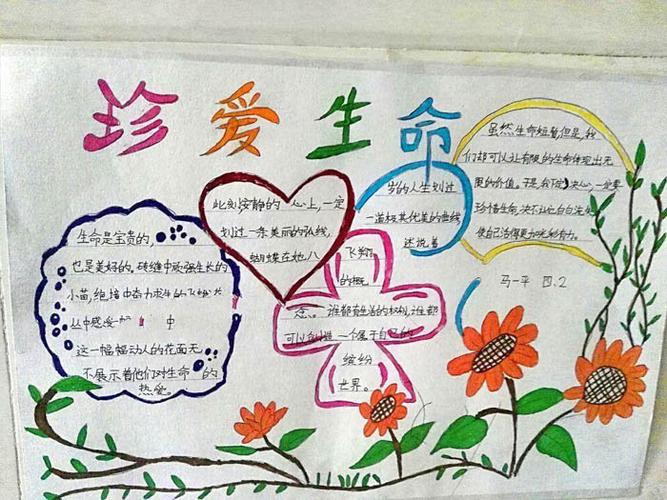 珍爱生命
生命是宝贵的,
也是美好的。砖缝中顽强生长的
小苗,绝境中奋力求生的飞蛾
丛中感受 中
这一幅幅动人的花面无
不展示着他们对生命的
热爱。
此刻安静的 心上,一定
划过一条美丽的弧线,
蝴蝶在她八
岁的人生划过
一道极其优美的曲线
述说着
飞翔
的概
念。谁都有生活的权利,谁都
可以创造一个属于自己的
缤纷
世界。
虽然生命短暂但是,我
们却可以让有限的生命体现出无
限的价值。于是,我下决心,一定要
珍惜生命,决不让他白白流
使自己活得更加光彩有力。
马一平 四.2